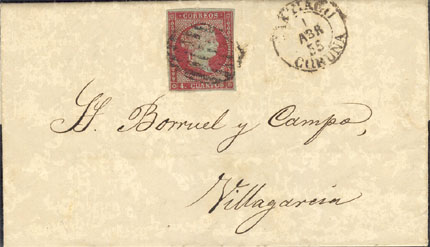 CORREOS
4. CUARTOS
SANTIAGO
1
ABR
55
CORUÑA
S. Borruel y Campo,
Villagarcia